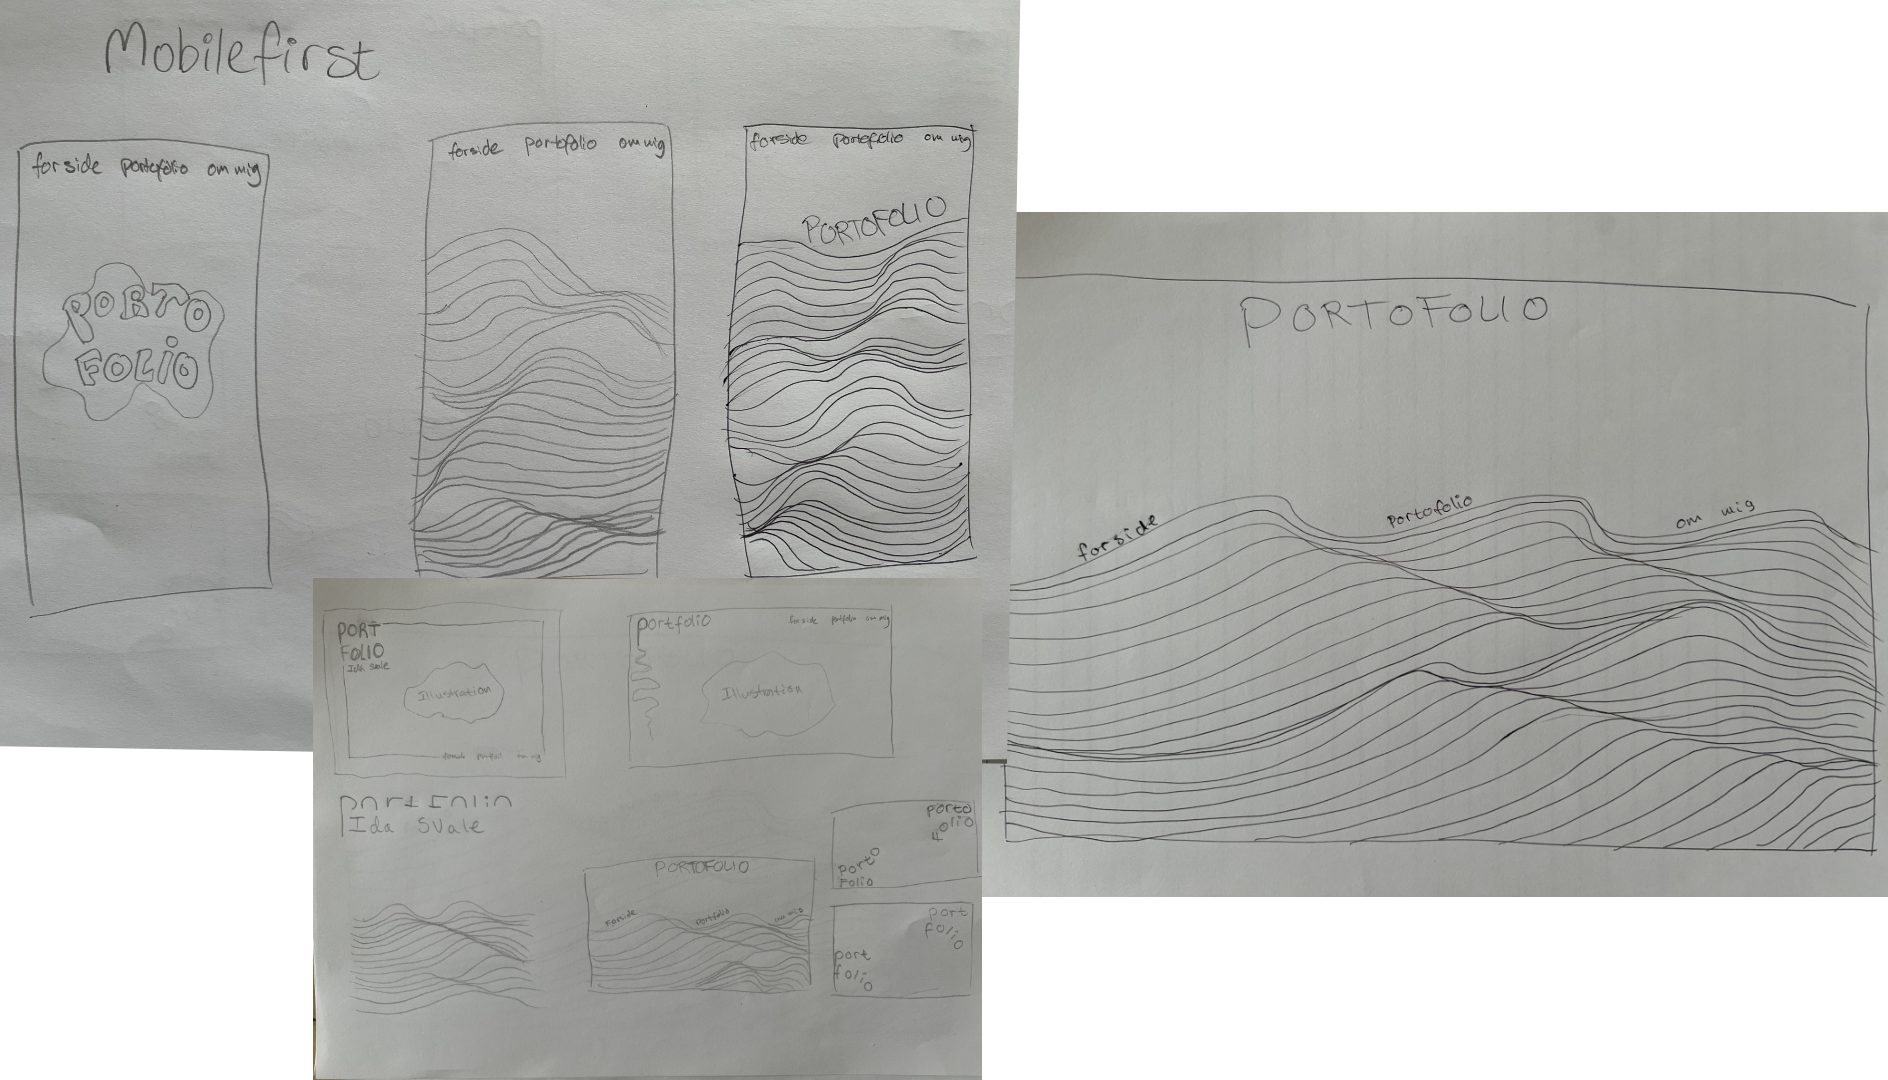 Mobilefirst
forside portofolio om mig
PORTO
FOLIO
forside portofolio om mig
forside portofolio om mig
PORTOFOLIO
PORTOFOLIO
forside portofolio om mig
PORT
FOLIO
Ida Svale
om mig
portfolio
forside portfolio om mig
Illustration
Illustration
portfolio
Ida Svale
PORTOFOLIO
Forside portfolio om mig
porto
folio
porto
folio
port
folio
port
folio